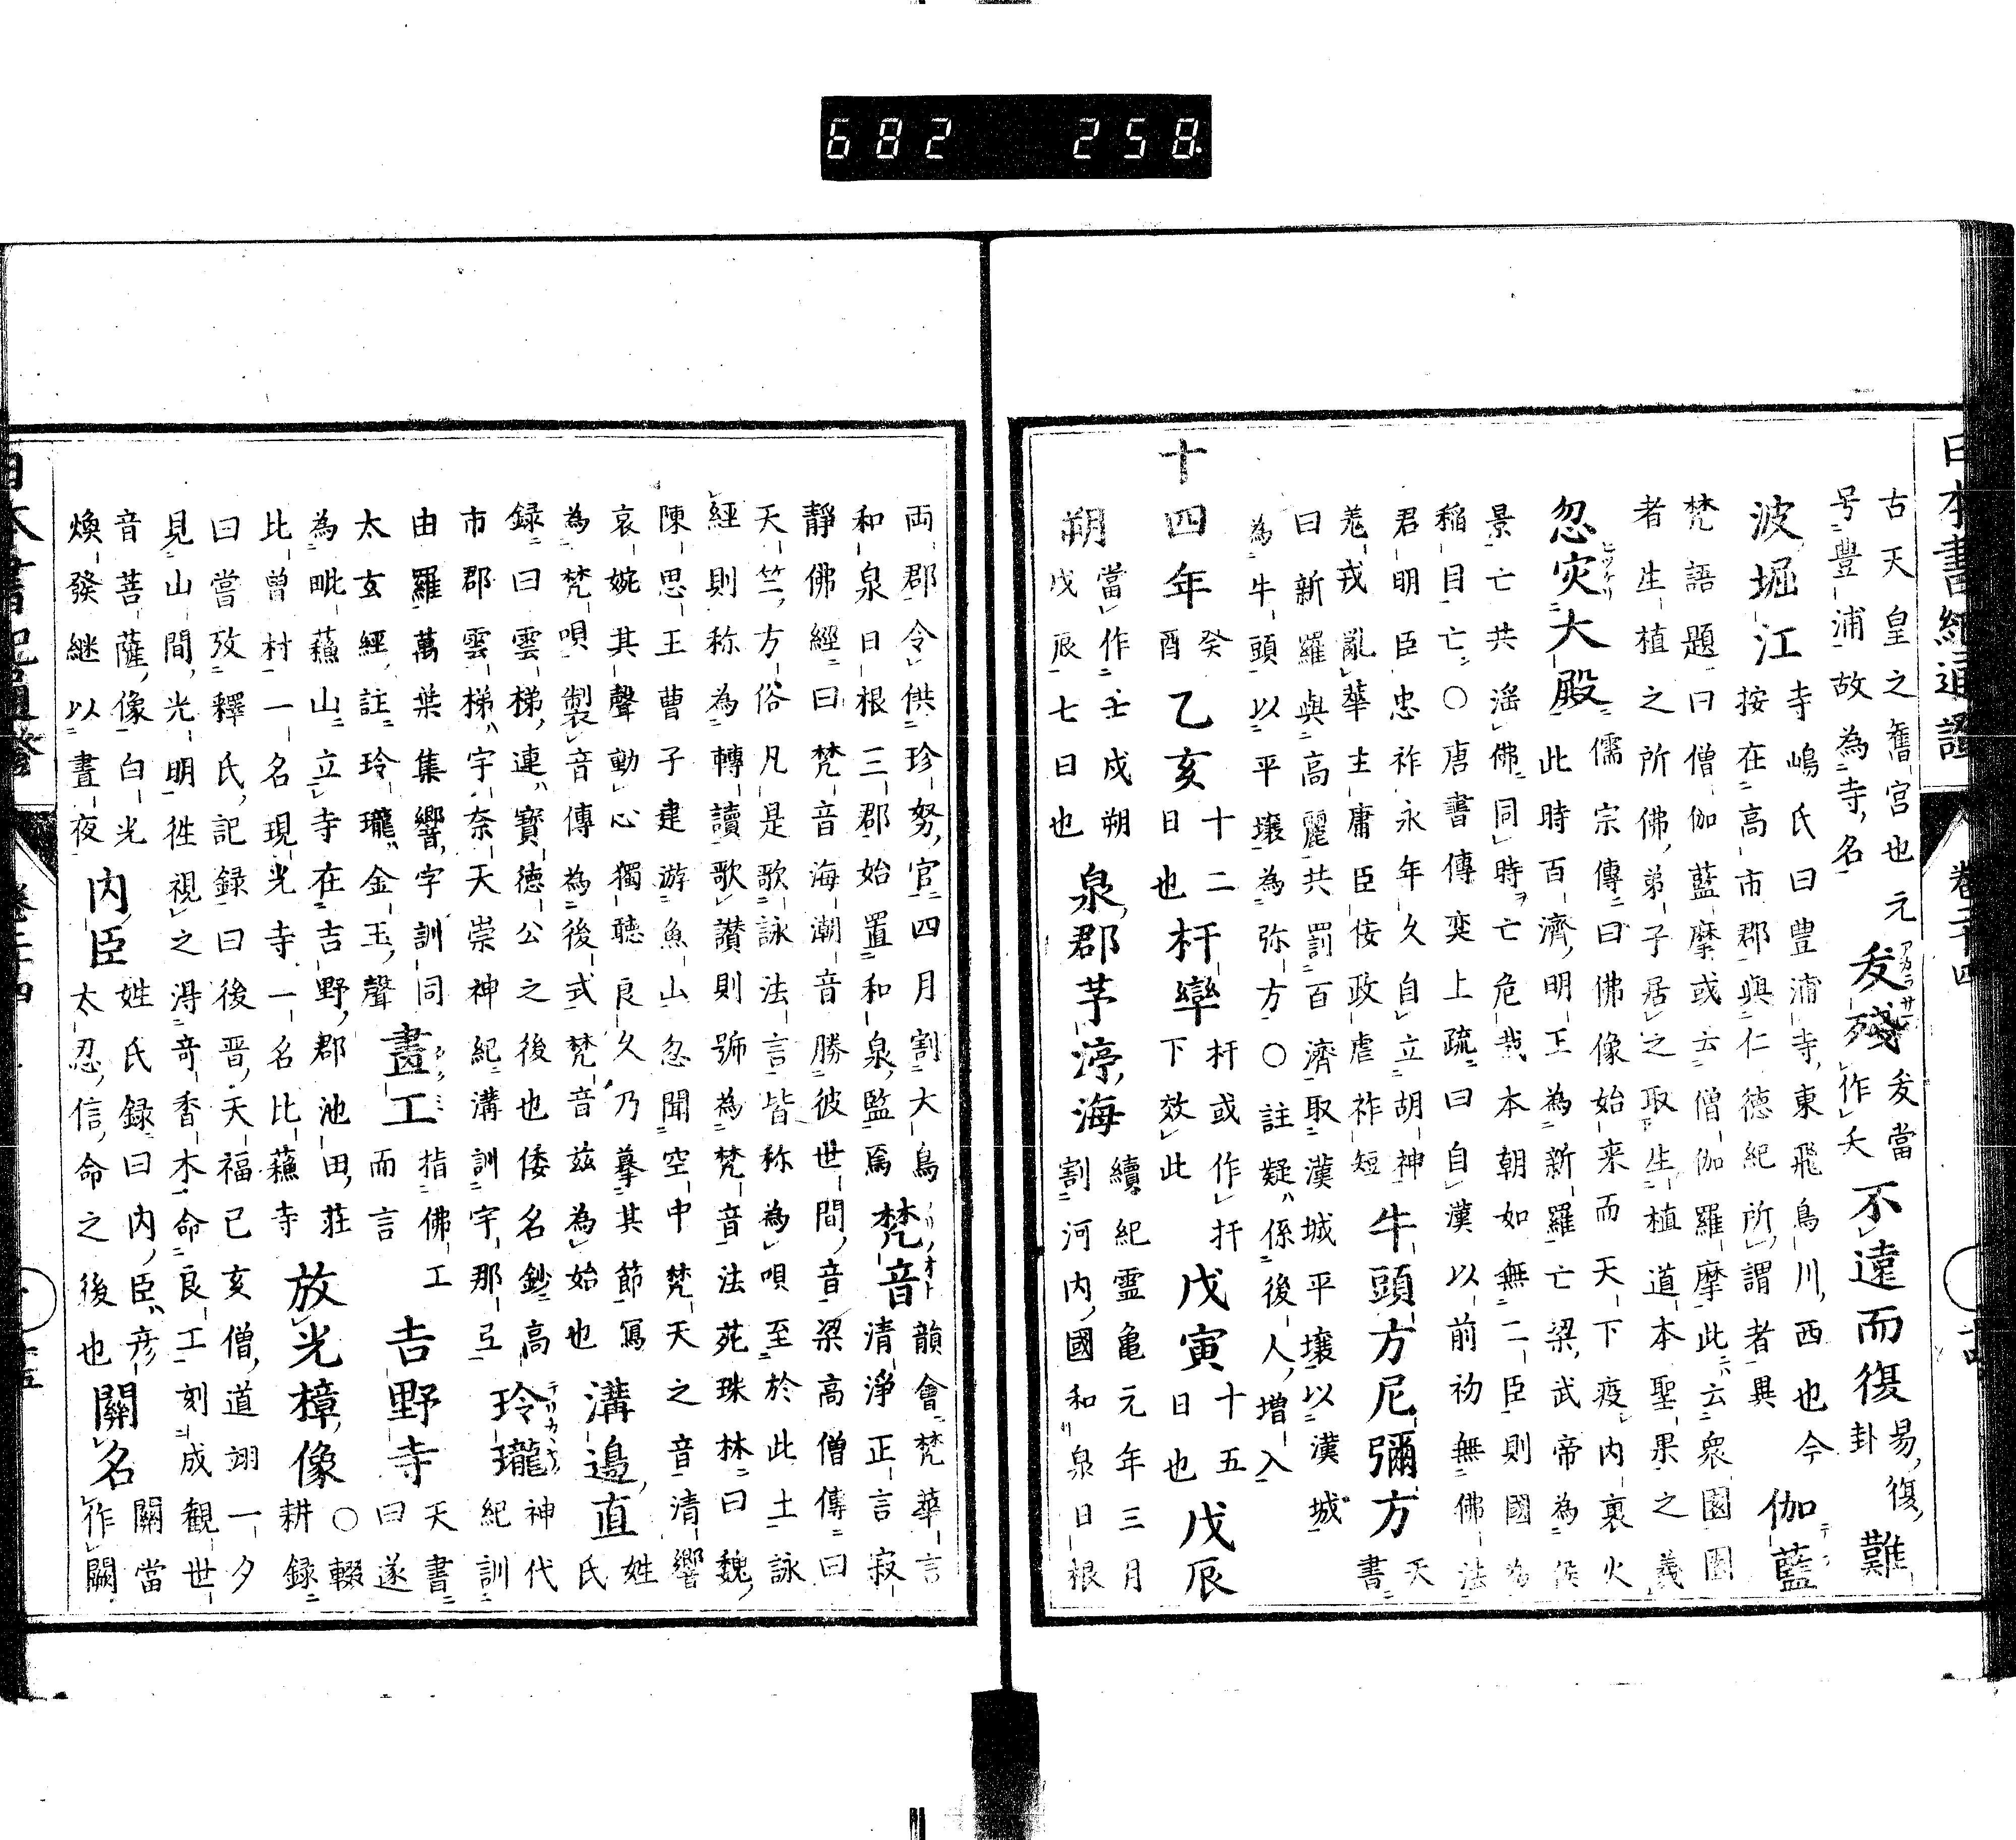 日本書紀通證 卷二十四
古天皇之舊宮也元
号豊浦故為寺名
犮殘
犮當
作夭
不遠而復
易復
卦
難
波堀江
寺嶋氏曰豊浦寺東飛鳥川西也今
按在高市郡與仁徳紀所謂者異
伽藍
梵語題曰僧伽藍摩或云僧伽羅摩此云衆園園
者生植之所佛弟子居之取生植道本聖果之義
忽災大殿
儒宗傳曰佛像始来而天下疫内裏火
此時百濟明王為新羅亡梁武帝為侯
景亡共滛佛同時亡危哉本朝如無二臣則國為
稲目亡○唐書傳奕上疏曰自漢以前初無佛法
君明臣忠祚永年久自立胡神
羗戎亂華主庸臣佞政虐祚短
牛頭方尼彌方
天
書
曰新羅與高麗共罰百濟取漢城平壤以漢城
為牛頭以平壤為弥方○註疑係後人増入
十四年
癸
酉
乙亥
十二
日也
杆率
杆或作扞
下效此
戊寅
十五
日也
戊辰
朔
當作壬戌朔
戊辰七日也
泉郡茅渟海
續紀霊亀元年三月
割河内國和泉日根
両郡令供珍努官四月割大鳥
和泉日根三郡始置和泉監焉
梵音
韻會梵華言
清浄正言寂
靜佛經曰梵音海潮音勝彼世間音梁高僧傳曰
天竺方俗凡是歌詠法言皆称為唄至於此土詠
經則称為轉讀歌讃則號為梵音法苑珠林曰魏
陳思王曹子建游魚山忽聞空中梵天之音清響
哀婉其聲動心獨聽良久乃摹其節寫
為梵唄製音傳為後式梵音茲為始也
溝邉直
姓
氏
録曰雲梯連寳徳公之後也倭名鈔高
市郡雲梯宇奈天崇神紀溝訓宇那弖
玲瓏
神代
紀訓
由羅萬葉集響字訓同
太玄經註玲瓏金玉聲
畫工
指佛工
而言
吉野寺
天書
曰遂
為毗蘓山立寺在吉野郡池田荘
比曽村一名現光寺一名比蘓寺
放光樟像
○輟
耕録
曰嘗攷釋氏記録曰後晋天福己亥僧道翊一夕
見山間光明徃視之淂奇香木命良工刻成觀世
音菩薩像白光
煥發継以晝夜
内臣
姓氏録曰内臣彦
太忍信命之後也
關名
關當
作闕